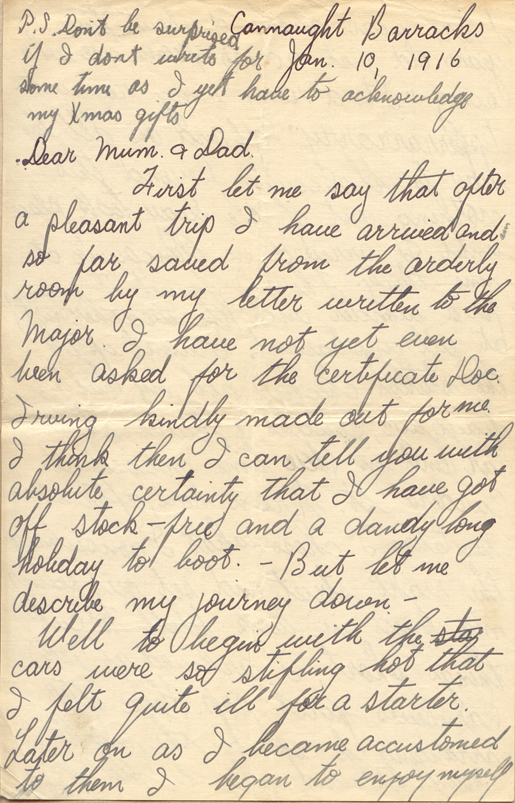 Connaught Barracks
Jan. 10, 1916
P.S. Don't be surprised
if I dont write for
some time as I yet have to acknowledge
my Xmas gifts
Dear Mum. & Dad.
First let me say that after
a pleasant trip I have arrived and
so far saved from the orderly
room by my letter written to the
Major. I have not yet even
been asked for the certificate Doc.
Irving kindly made out for me.
I think then I can tell you with
absolute certainty that I have got
off stock-free and a dandy long
holiday to boot. - But let me
describe my journey down -
Well to begin with the sta
cars were so stifling hot that
I felt quite ill for a starter.
Later on as I became accustomed
to them I began to enjoy myself